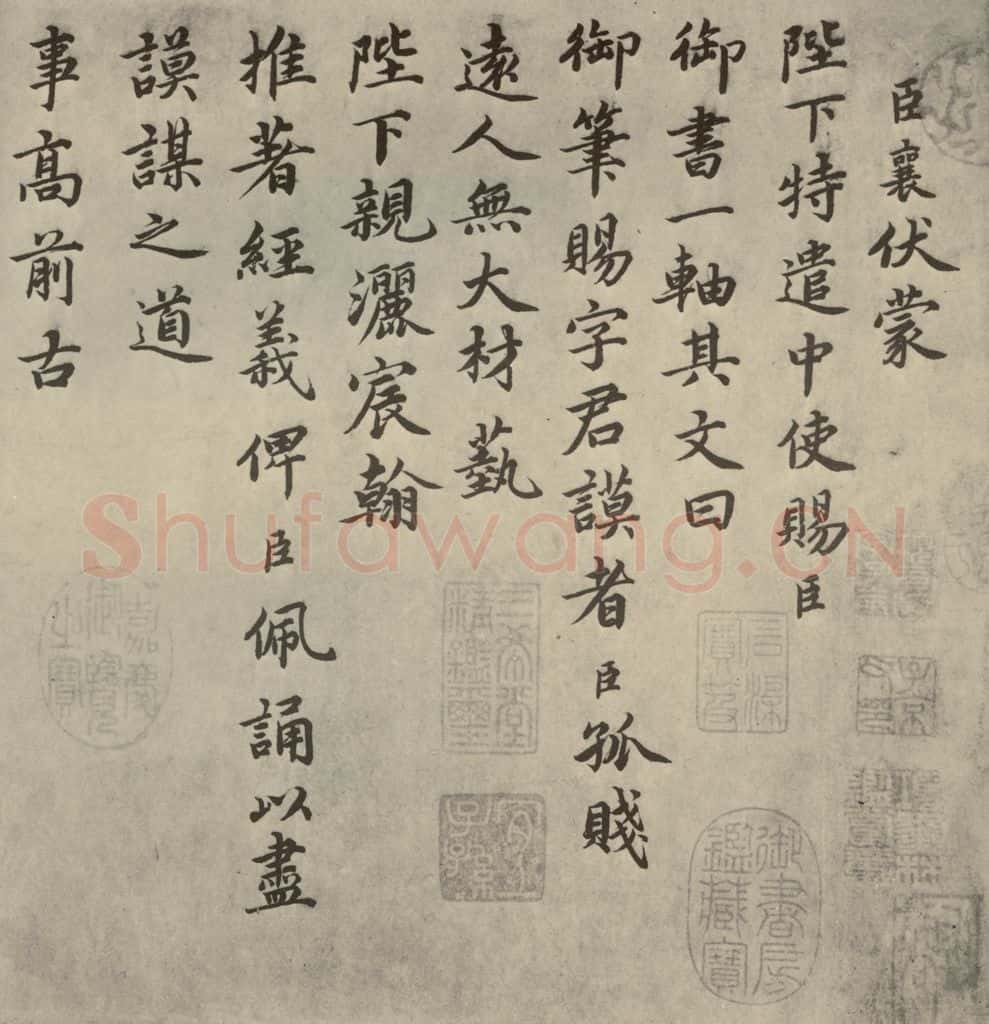 臣襄伏蒙
陛下特遣中使賜臣
御書一軸其文曰
御筆賜字君謨者臣孤賤
遠人無大材藝
陛下親灑宸翰
推著經義俾臣佩誦以盡
謨謀之道
事高前古
Shufawang.CN
御書房鑑藏寶
三希堂精鑑璽
宜子孫
嘉慶御覽之寶